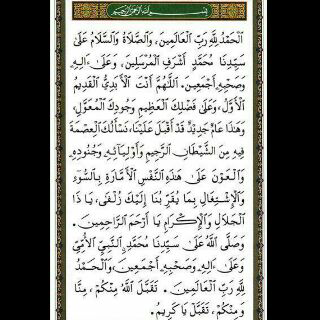 بسم الله الرحمن الرحيم
اَلْحَمْدُ لِلّٰهِ رَبِّ الْعَالَمِينَ، وَالصَّلَاةُ وَالسَّلَامُ عَلَى
سَيِّدِنَا مُحَمَّدٍ أَشْرَفِ الْمُرْسَلِينَ، وَعَلَى آلِهِ
وَصَحْبِهِ أَجْمَعِينَ. اللّٰهُمَّ أَنْتَ الْأَبَدِيُّ الْقَدِيمُ
الْأَوَّلُ، وَعَلَى فَضْلِكَ الْعَظِيمِ وَجُودِكَ الْمُعَوَّلِ،
وَهٰذَا عَامٌ جَدِيدٌ قَدْ أَقْبَلَ عَلَيْنَا، نَسْأَلُكَ الْعِصْمَةَ
فِيهِ مِنَ الشَّيْطَانِ الرَّجِيمِ وَأَوْلِيَائِهِ وَجُنُودِهِ
وَالْعَوْنَ عَلَى هٰذِهِ النَّفْسِ الْأَمَّارَةِ بِالسُّوءِ
وَالْاِشْتِغَالِ بِمَا يُقَرِّبُنَا إِلَيْكَ زُلْفَى، يَا ذَا
الْجَلَالِ وَالْإِكْرَامِ يَا أَرْحَمَ الرَّاحِمِينَ.
وَصَلَّى اللّٰهُ عَلَى سَيِّدِنَا مُحَمَّدٍ النَّبِيِّ الْأُمِّيِّ
وَعَلَى آلِهِ وَصَحْبِهِ أَجْمَعِينَ، وَالْحَمْدُ
لِلّٰهِ رَبِّ الْعَالَمِينَ. تَقَبَّلَ اللّٰهُ مِنْكُمْ، مِنَّا
وَمِنْكُمْ، تَقَبَّلْ يَا كَرِيمُ.